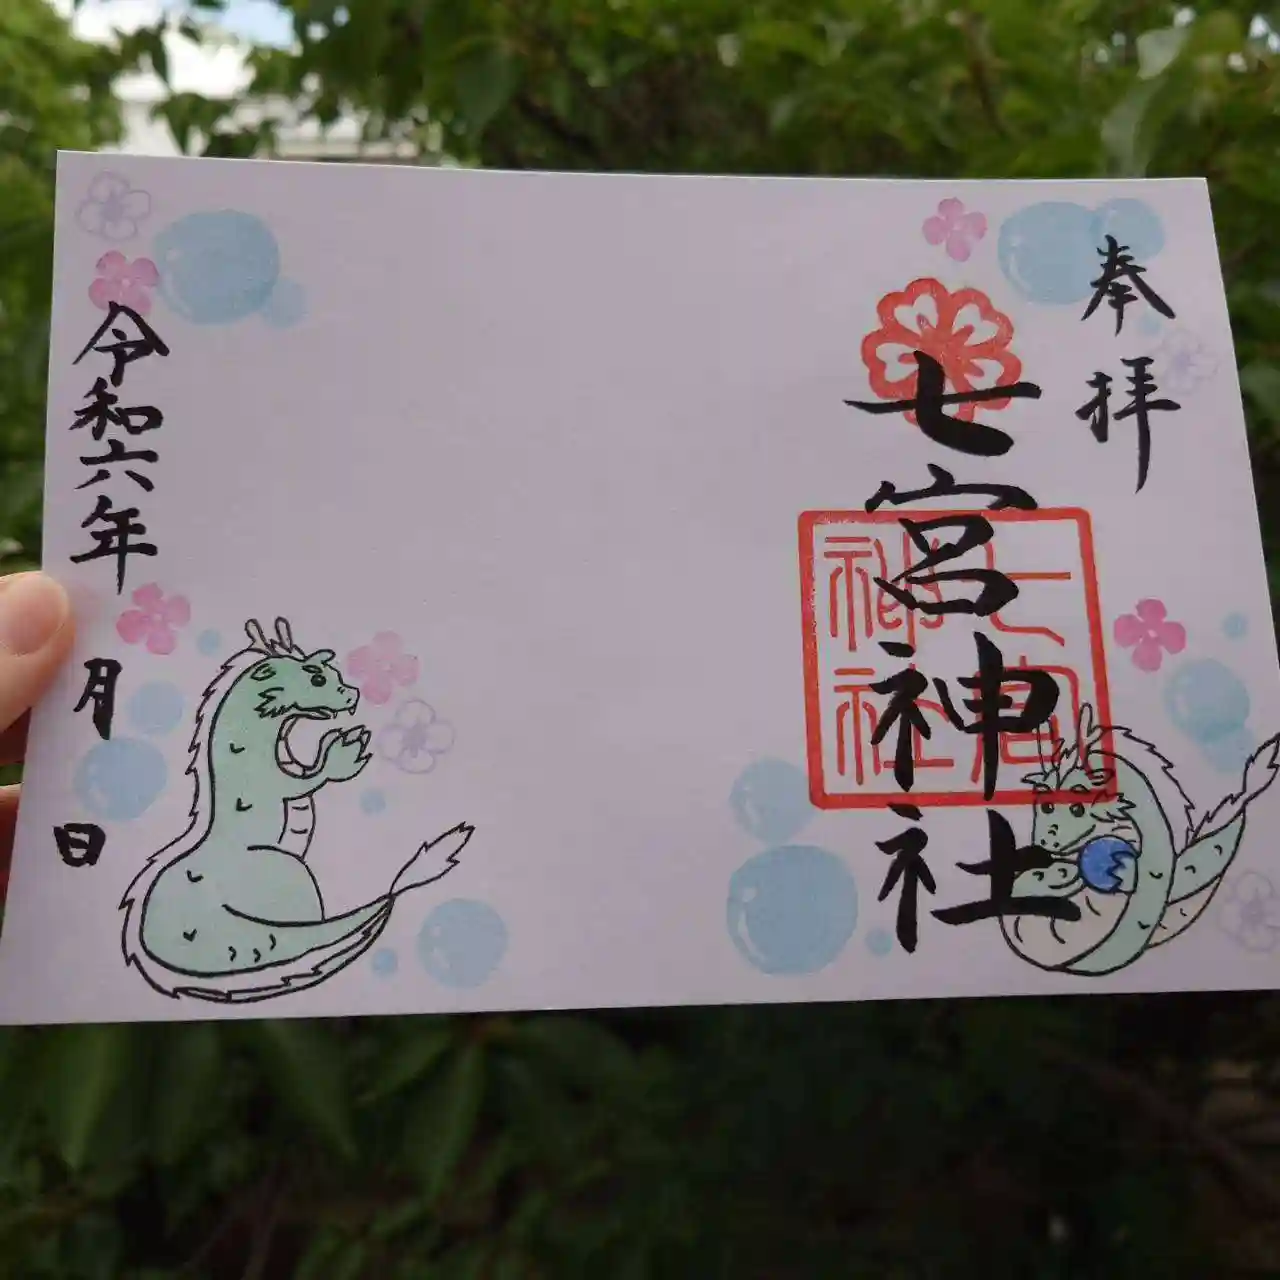 奉拝
七宮神社
七宮
神社
令和六年
月
日